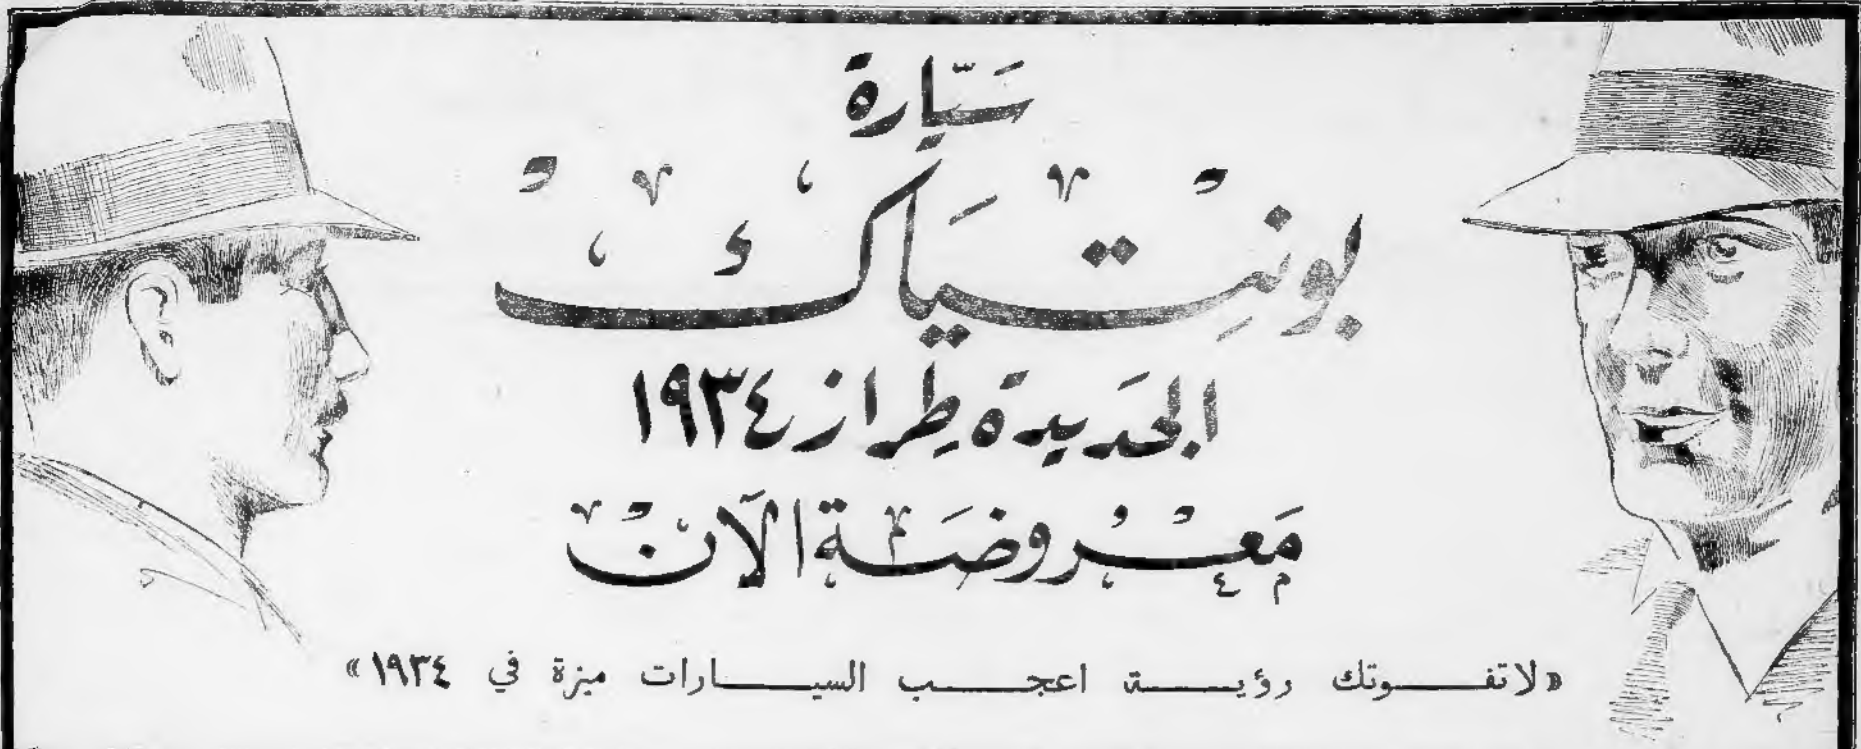 سَيَّارة
بونتِيَاكْ
الجَديدة طِراز ١٩٣٤
مَعْرُوضَة الآنْ
«لا تفـــوتك رؤيـــة اعجـــب السيـــارات ميزة في ١٩٣٤»